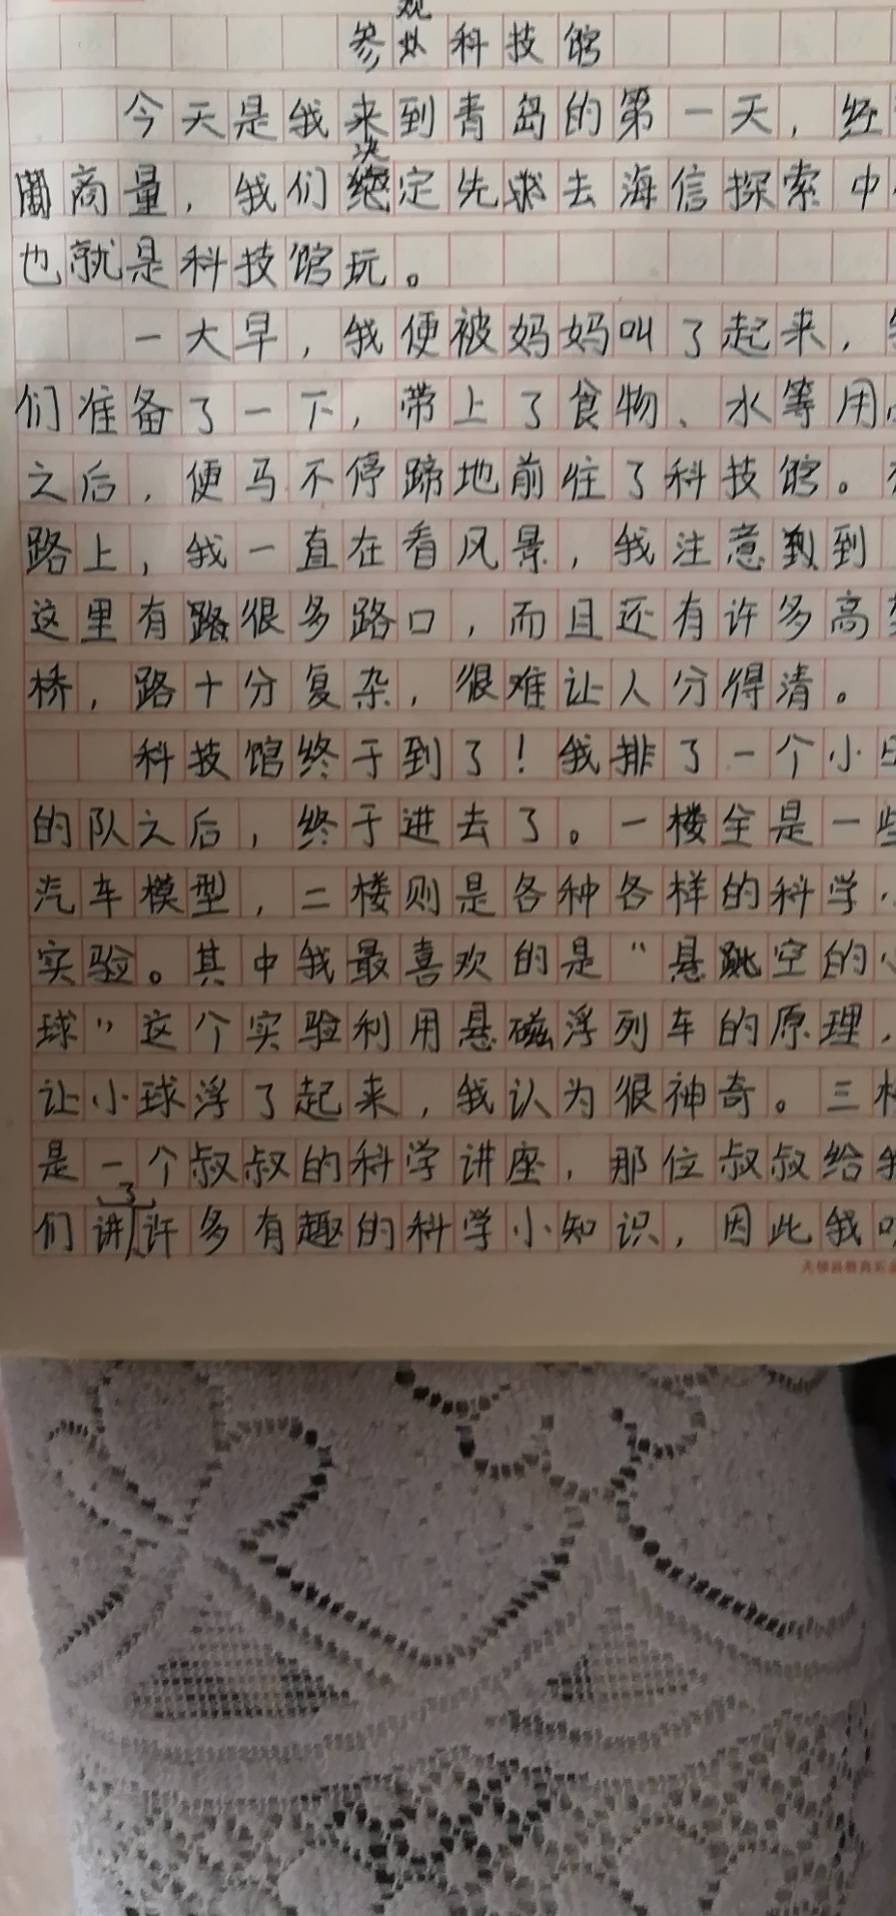 参观科技馆
今天是我来到青岛的第一天，经
商量，我们决定先去海信探索中
也就是科技馆玩。
一大早，我便被妈妈叫了起来，
们准备了一下，带上了食物、水等用
之后，便马不停蹄地前往了科技馆。
路上，我一直在看风景，我注意到
这里有很多路口，而且还有许多高
桥，路十分复杂，很难让人分得清。
科技馆终于到了！我排了一个小
的队之后，终于进去了。一楼全是一些
汽车模型，二楼则是各种各样的科学
实验。其中我最喜欢的是“悬空的小
球”这个实验利用悬磁浮列车的原理，
让小球浮了起来，我认为很神奇。三
是一个叔叔的科学讲座，那位叔叔给
们讲了许多有趣的科学小知识，因此我